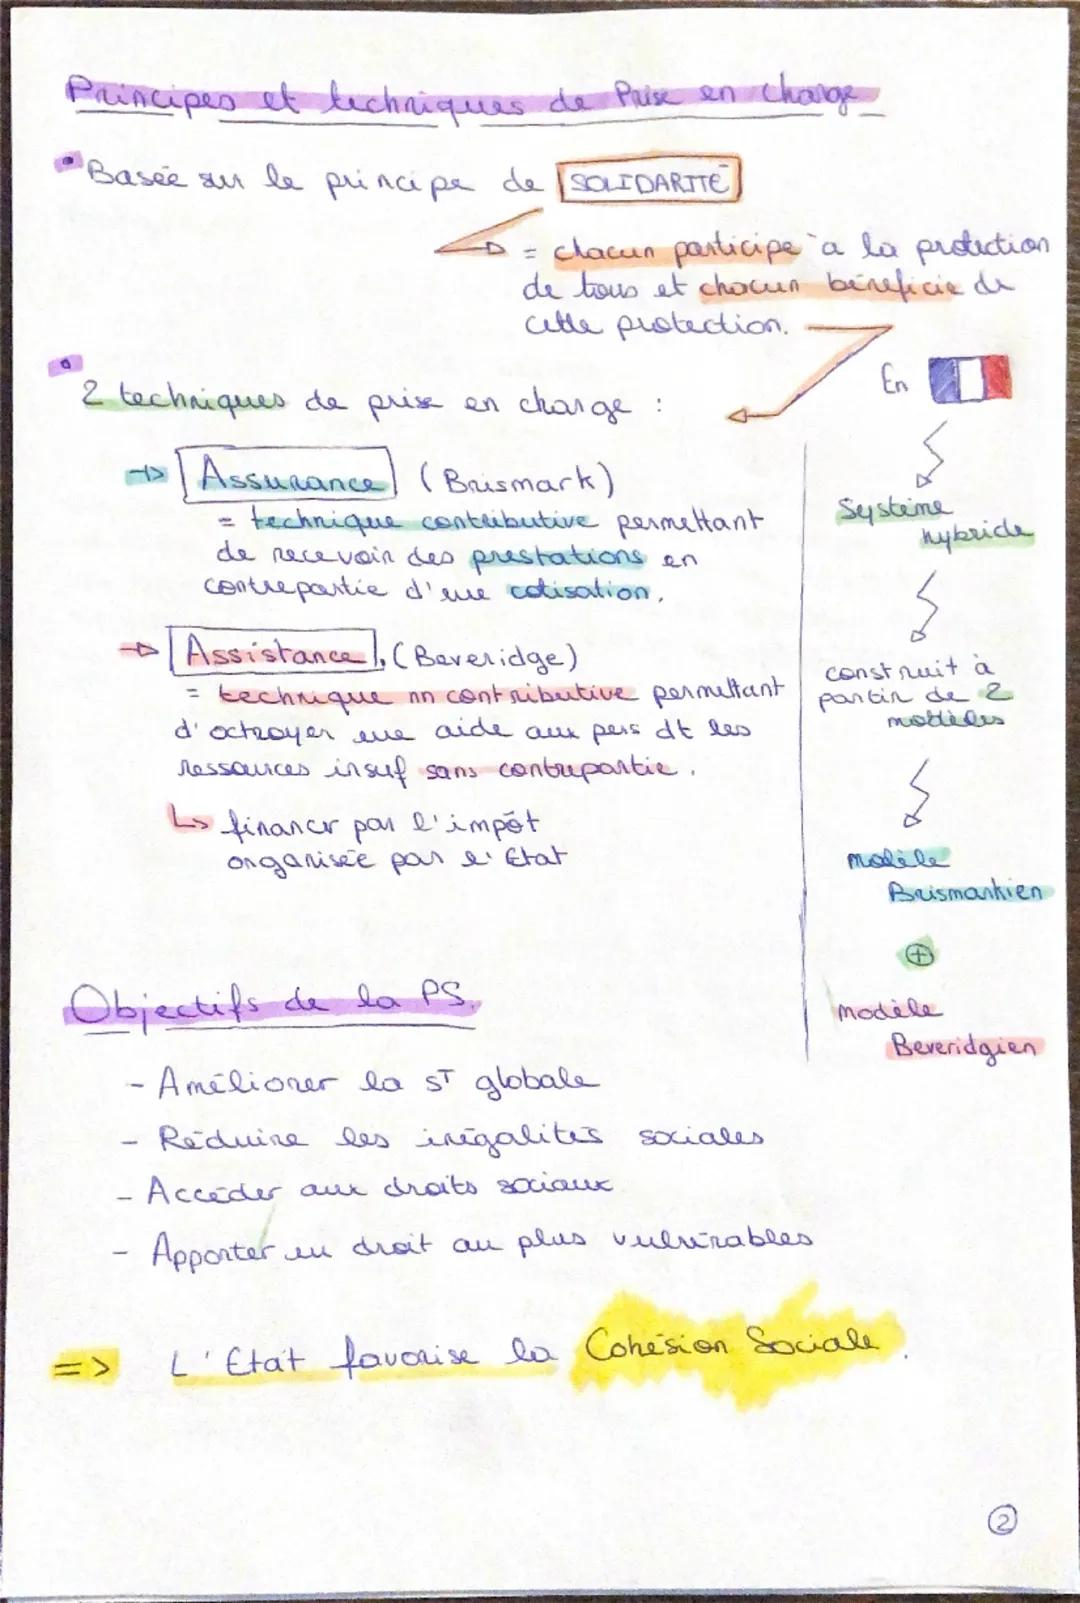 Principes et techniques de Prise en charge
• Basée sur le principe de SOLIDARITÉ
= chacun participe à la protection
de tous et chacun bénéficie de
cette protection.
• 2 techniques de prise en charge :
→ Assurance (Brismark)
= technique contributive permettant
de recevoir des prestations en
contrepartie d'une cotisation.
→ Assistance. (Beveridge)
= technique nn contributive permettant
d'octroyer une aide aux pers dt les
ressources insuf sans contrepartie.
↳ financer par l'impôt
organisée par l'Etat
En
Système
hybride
construit à
partir de 2
modèles
modèle
Brismarkien
+
modèle
Beveridgien
Objectifs de la PS.
- Améliorer la sT globale
- Réduire les inégalités sociales
- Accéder aux droits sociaux
- Apporter un droit au plus vulnérables
=> L'Etat favorise la Cohésion Sociale.
2